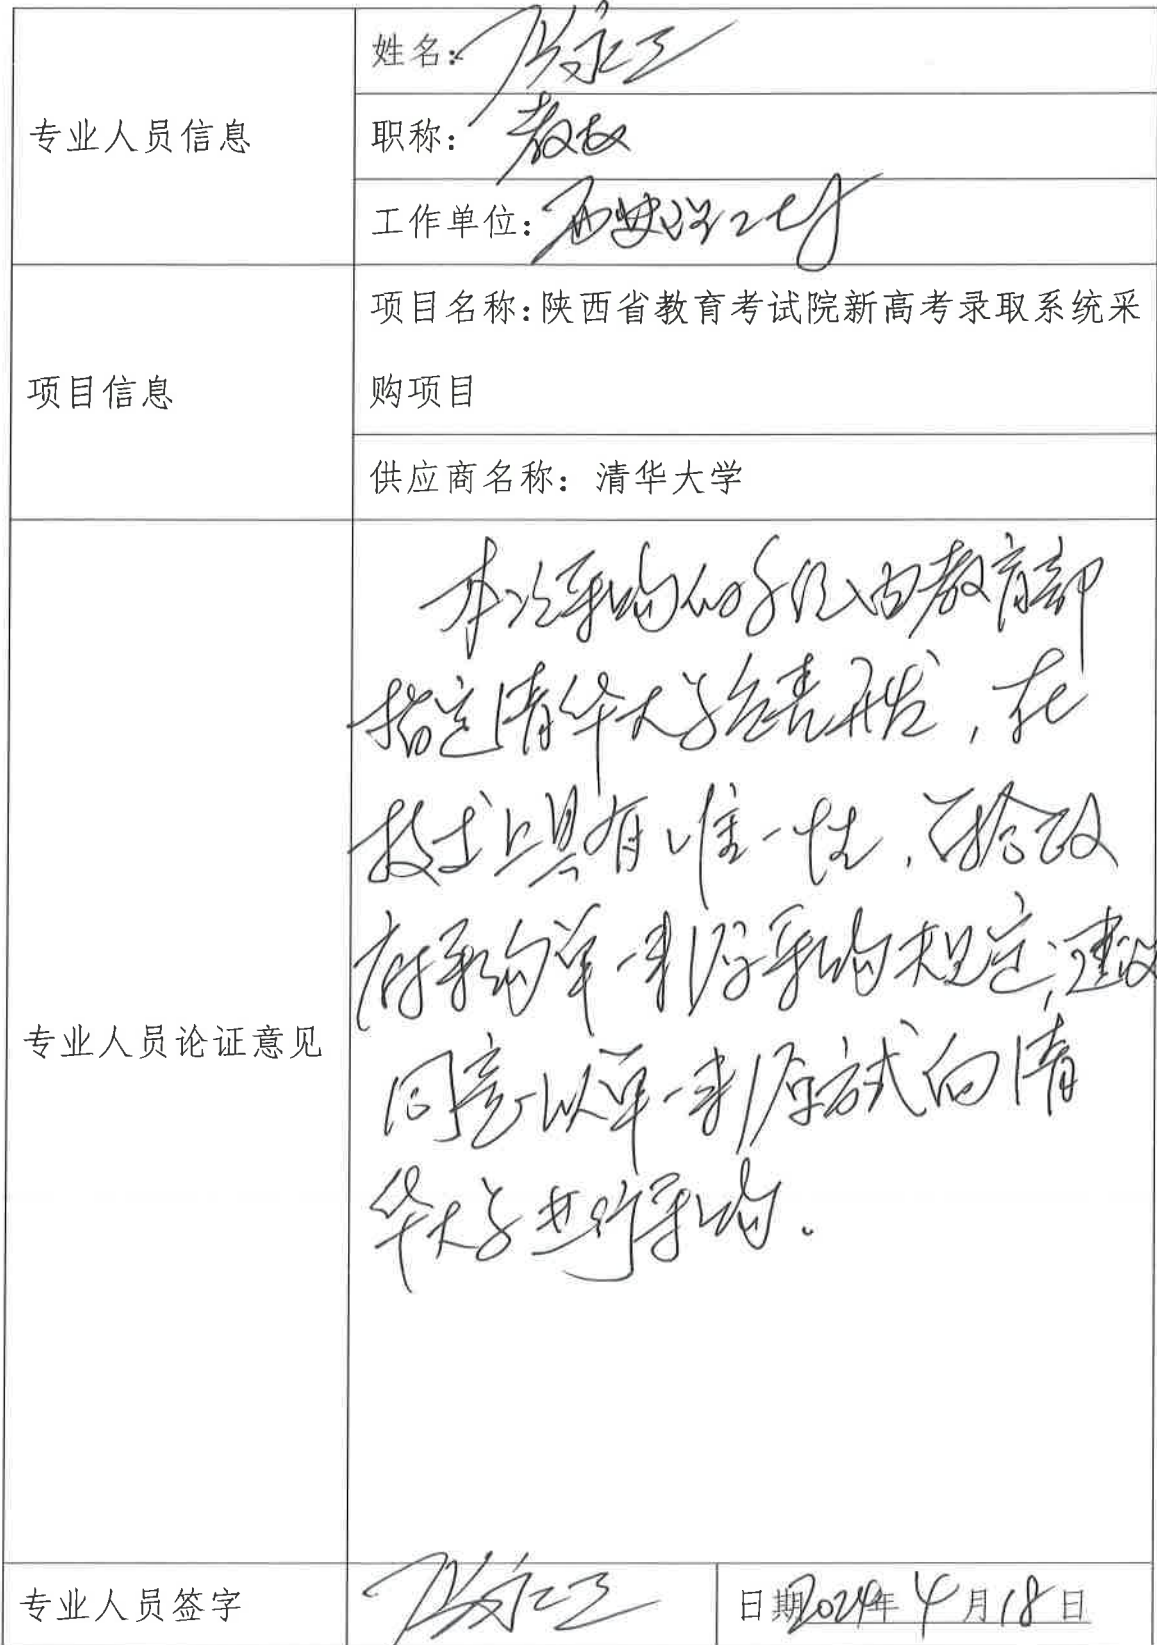 专业人员信息
姓名:
职称: 教授
工作单位: 西安理工大学
项目信息
项目名称:陕西省教育考试院新高考录取系统采
购项目
供应商名称: 清华大学
专业人员论证意见
本次采购的系统由教育部
指定清华大学负责开发,在
技术上具有唯一性,符合政
府采购单一来源采购规定,建议
同意以单一来源方式向清
华大学进行采购.
专业人员签字
日期2024年4月18日